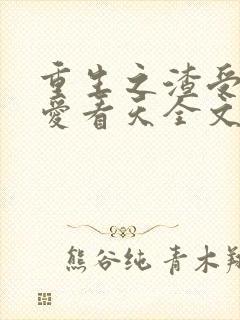 重生之渣受
爱看天全文
熊谷纯 青木翔